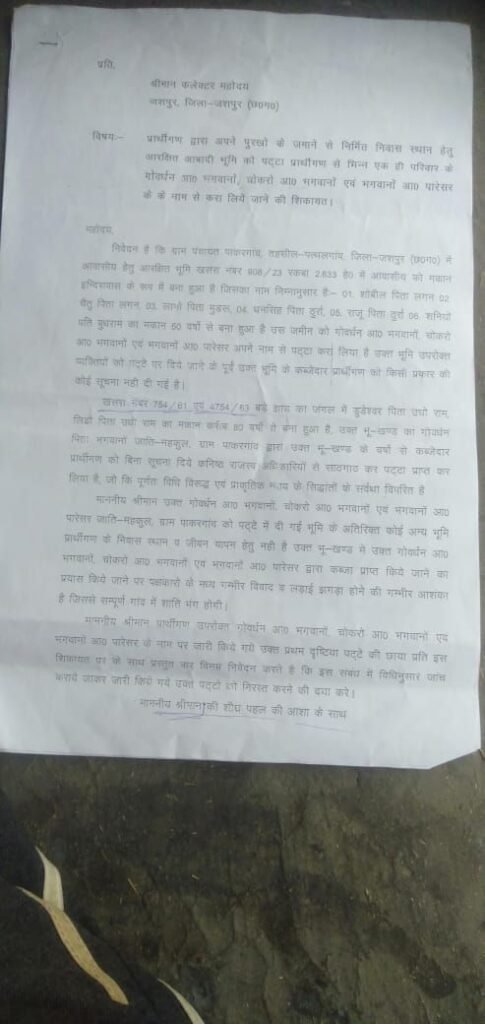 प्रति,
श्रीमान कलेक्टर महोदय
जशपुर, जिला-जशपुर (छ0ग0)
विषयः- प्रार्थीगण द्वारा अपने पुरखो के जमाने से निर्मित निवास स्थान हेतु
आरक्षित आबादी भूमि को पट्टा प्रार्थीगण से भिन्न एक ही परिवार के
गोवर्धन आ0 भगवानों, चोकरो आ0 भगवानों एवं भगवानों आ0 पारेसर
के के नाम से करा लिये जाने की शिकायत।
महोदय,
निवेदन है कि ग्राम पंचायत पाकरगांव, तहसील-पत्थलगांव, जिला-जशपुर (छ0ग0) में
आवासीय हेतु आरक्षित भूमि खसरा नंबर 908/23 रकबा 2.633 हे0 में आवासीय को मकान
इन्दिरावास के रूप में बना हुआ है जिसका नाम निम्नानुसार है:- 01. शोबील पिता लगन 02.
चैतु पिता लगन, 03. लाभो पिता मुडरू, 04. धनसिंह पिता ठुर्रा, 05. राजू पिता ठुर्रा 06. शनियो
पति बुधराम का मकान 50 वर्षो से बना हुआ है उस जमीन को गोवर्धन आ0 भगवानों, चोकरो
आ0 भगवानों एवं भगवानों आ0 पारेसर अपने नाम से पट्टा करा लिया है उक्त भूमि उपरोक्त
व्यक्तियों को पट्टे पर दिये जाने के पूर्व उक्त भूमि के कब्जेदार प्रार्थीगण को किसी प्रकार की
कोई सूचना नही दी गई है।
खसरा नंबर-754/61 एवं 4754/63 बडे झाड का जंगल में डुडेश्वर पिता उधो राम,
पिता उधो राम का मकान करीब 80 वर्षो से बना हुआ है, उक्त भू-खण्ड का गोवर्धन
पिता भगवानों जाति-महकुल, ग्राम पाकरगांव द्वारा उक्त भू-खण्ड के वर्षो से कब्जेदार
प्रार्थीगण को बिना सूचना दिये कनिष्ठ राजस्व अधिकारियों से सांठगांठ कर पट्टा प्राप्त कर
लिया है, जो कि पूर्णतः विधि विरूद्ध एवं प्राकृतिक न्याय के सिद्धांतों के सर्वथा विपरित है
माननीय श्रीमान उक्त गोवर्धन आ0 भगवानों, चोकरो आ0 भगवानों एवं भगवानों आ0
पारेसर जाति-महकुल, ग्राम पाकरगांव को पट्टे में दी गई भूमि के अतिरिक्त कोई अन्य भूमि
प्रार्थीगण के निवास स्थान व जीवन यापन हेतु नही है उक्त भू-खण्ड में उक्त गोवर्धन आ0
भगवानों, चोकरो आ0 भगवानों एवं भगवानों आ0 पारेसर द्वारा कब्जा प्राप्त किये जाने का
प्रयास किये जाने पर पक्षकारो के मध्य गम्भीर विवाद व लड़ाई झगड़ा होने की गम्भीर आशंका
है जिससे सम्पूर्ण गांव में शांति भंग होगी।
माननीय श्रीमान प्रार्थीगण उपरोक्त गोवर्धन आ0 भगवानों, चोकरो आ0 भगवानों एवं
भगवानों आ0 पारेसर के नाम पर जारी किये गये उक्त प्रथम दृष्टिया पट्टे की छाया प्रति इस
शिकायत पत्र के साथ प्रस्तुत कर विनम्र निवेदन करते है कि इस संबंध में विधिनुसार जांच
कराये जाकर जारी किये गये उक्त पट्टो को निरस्त करने की दया करे।
माननीय श्रीमान की शीघ्र पहल की आशा के साथ